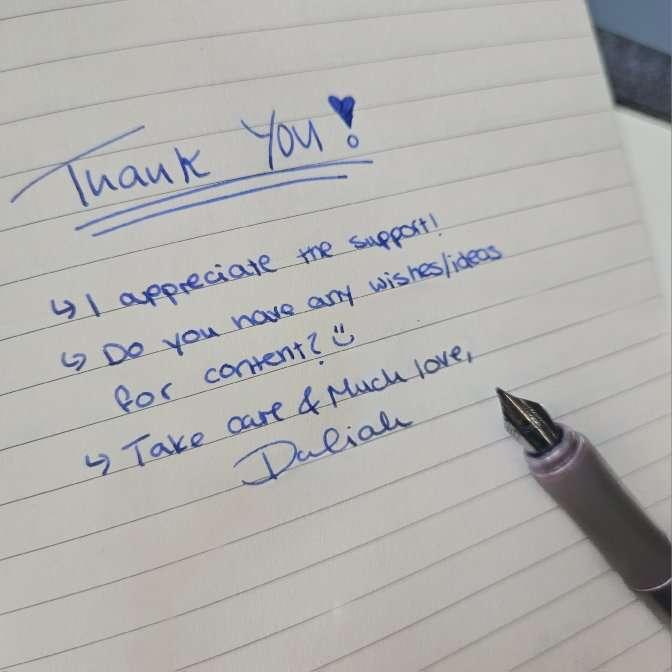 Thank You!
↳ I appreciate the support!
↳ Do you have any wishes/ideas
for content? :)
↳ Take care & Much love,
Daliah